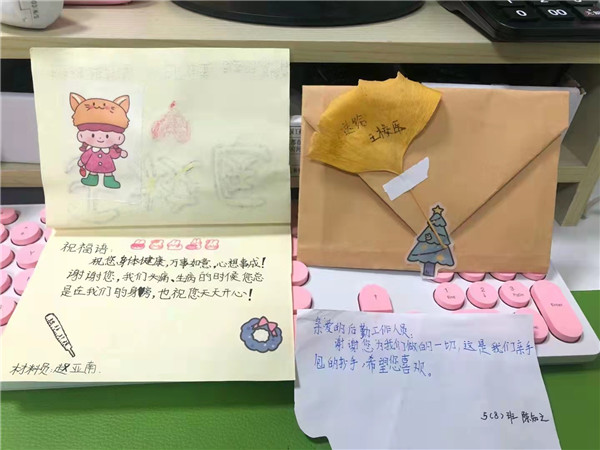 祝福语:
祝您,身体健康,万事如意,心想事成!
谢谢您,我们头痛、生病的时候您总
是在我们的身旁,也祝您天天开心!
材料员:赵亚南
送给
亲爱的后勤工作人员:
谢谢您为我们做的一切,这是我们亲手
包的抄手,希望您喜欢。
5(8)班 陈